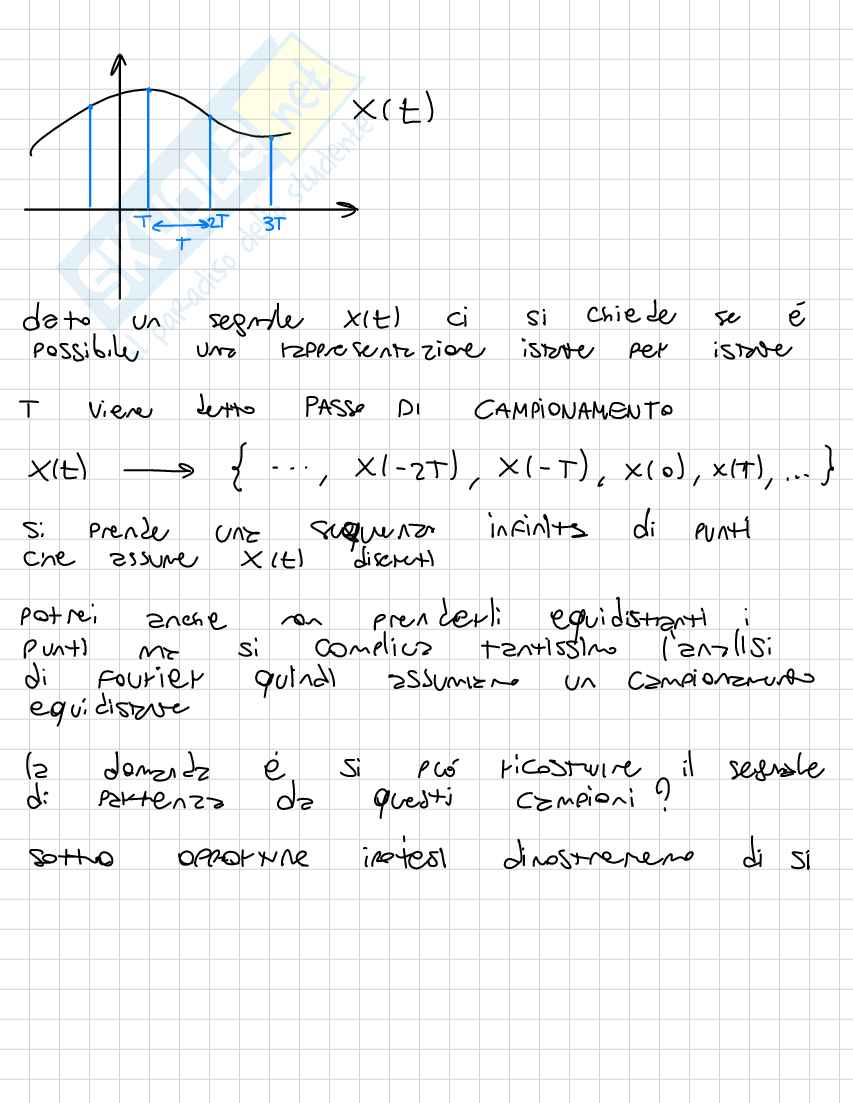 SKUOLA.net
il paradiso dello studente
X(t)
T 2T 3T
T
dato un segnale x(t) ci si chiede se é
possibile una rappresentazione istante per istante
T viene detto PASSO DI CAMPIONAMENTO
X(t) → { ..., X(-2T), X(-T), X(0), X(T), ... }
si prende una sequenza infinita di punti
che assume X(t) discreti
potrei anche non prenderli equidistanti i
punti ma si complica tantissimo l'analisi
di Fourier quindi assumiamo un campionamento
equidistante
la domanda é si può ricostruire il segnale
di partenza da questi campioni?
sotto opportune ipotesi dimostreremo di sì